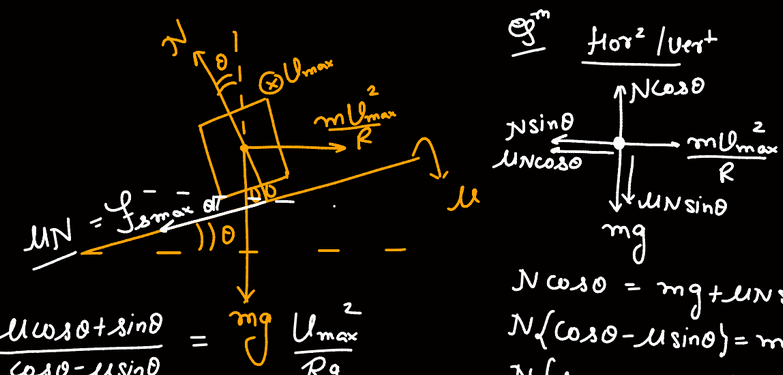 N
θ
⊗ Umax
mUmax²/R
μ
μN = fsmax
θ
θ
mg
(μcosθ+sinθ)/(cosθ-μsinθ) = Umax²/Rg
Hor² / vert
Ncosθ
Nsinθ
μNcosθ
mUmax²/R
μNsinθ
mg
Ncosθ = mg+μNs
N{cosθ-μsinθ} = m
N{